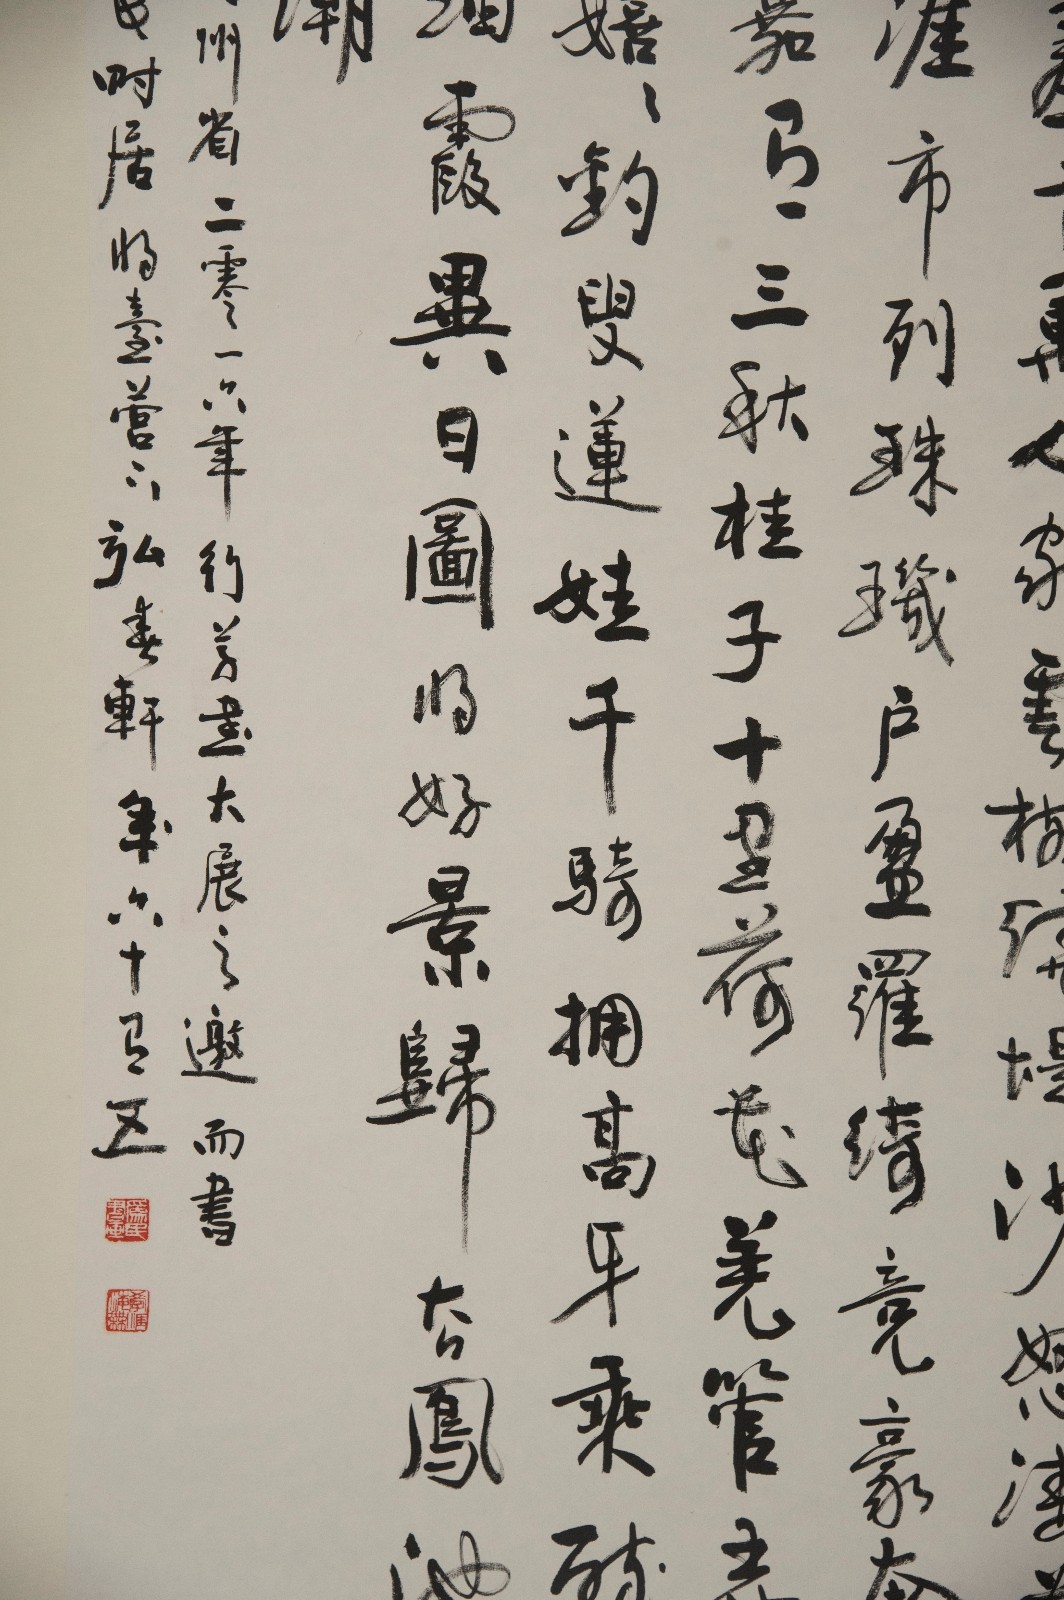 差十萬人家雲樹繞堤沙怒濤
涯市列珠璣户盈羅綺竞豪奢
嘉有三秋桂子十里荷花羌管弄
嬉〻釣叟蓮娃千騎拥高牙乘醉
烟霞異日圖将好景歸去鳳池
潮
州省二零一六年行草書大展之邀而書
时居将臺营弘春軒年六十有五